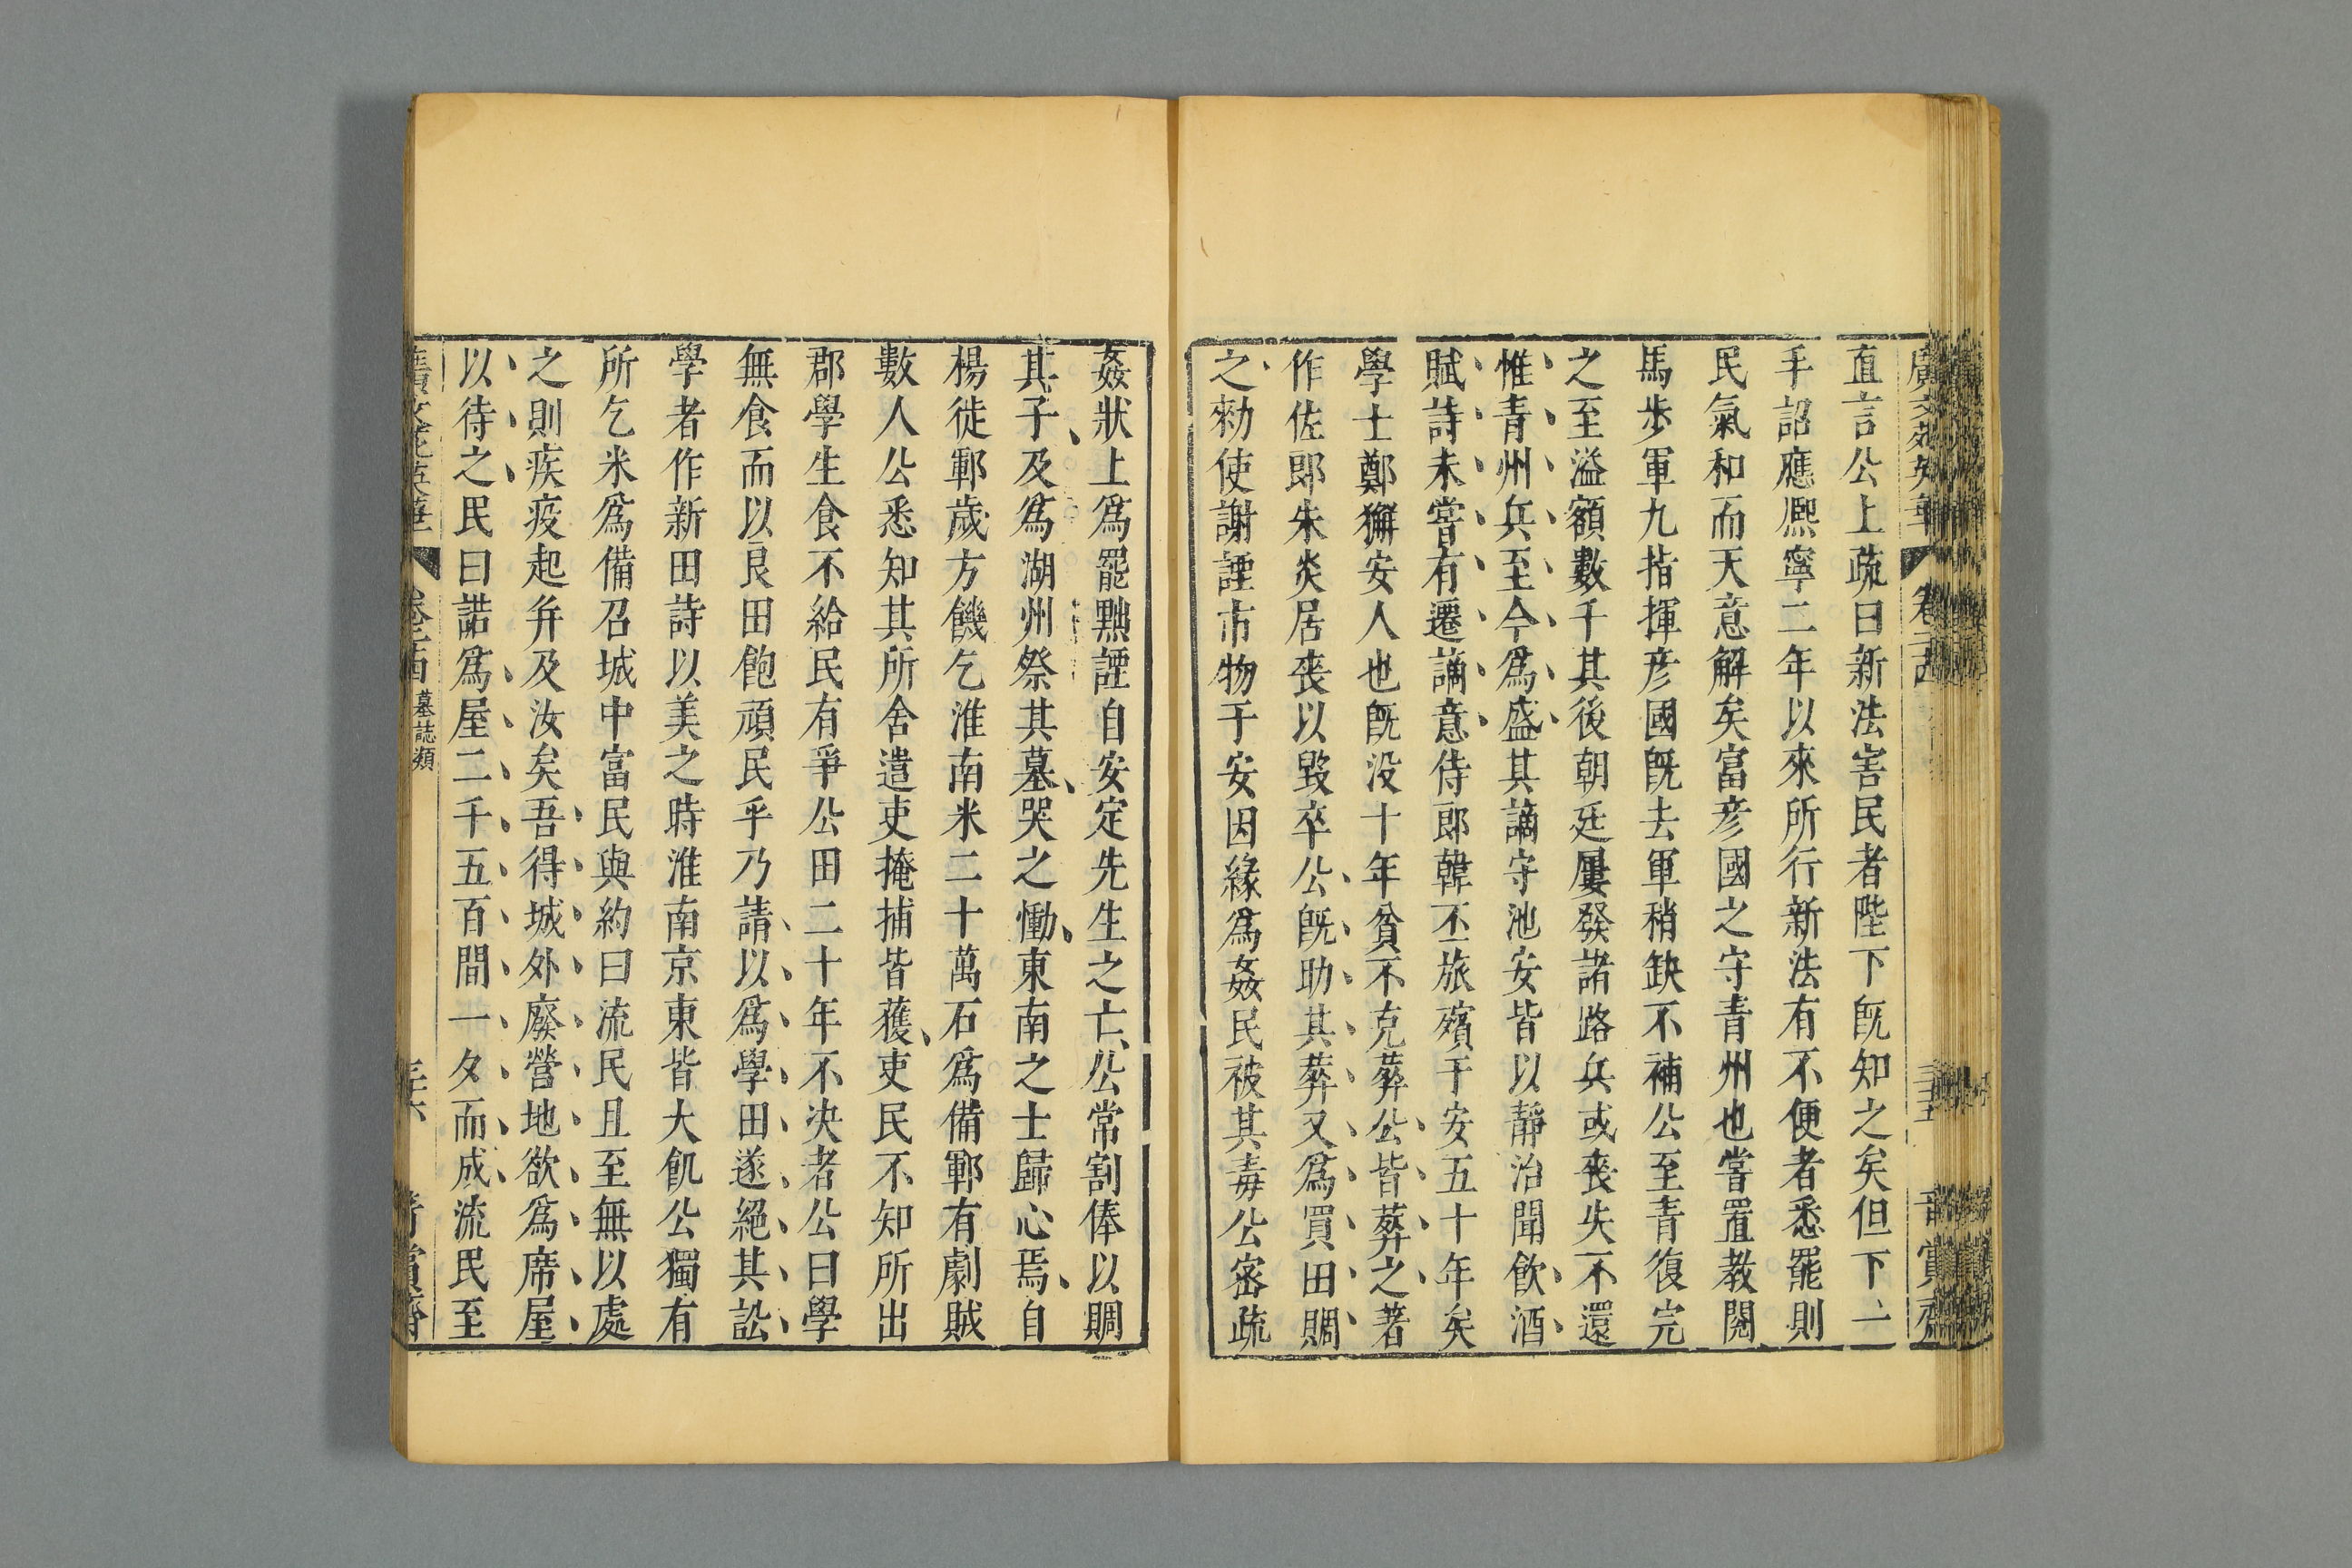 直言公上疏曰新法害民者陛下旣知之矣但下一
手詔應熈寧二年以來所行新法有不便者悉罷則
民氣和而天意解矣富彦國之守青州也嘗置教閱
馬步軍九指揮彦國旣去軍稍缺不補公至青復完
之至溢額數千其後朝廷屢發諸路兵或喪失不還
惟青州兵至今爲盛其謫守池安皆以靜治聞飮酒
賦詩未嘗有遷謫意侍郎韓丕旅殯于安五十年矣
學士鄭獬安人也旣没十年貧不克葬公皆葬之著
作佐郎朱炎居喪以毀卒公旣助其葬又爲買田賙
之勑使謝諲市物于安因緣爲姦民被其毒公密疏
姦狀上爲罷黜諲自安定先生之亡公常割俸以賙
其子及爲湖州祭其墓哭之慟東南之士歸心焉自
楊徙鄆歲方饑乞淮南米二十萬石爲備鄆有劇賊
數人公悉知其所舍遣吏掩捕皆獲吏民不知所出
郡學生食不給民有爭公田二十年不决者公曰學
無食而以良田飽頑民乎乃請以爲學田遂絕其訟
學者作新田詩以美之時淮南京東皆大飢公獨有
所乞米爲備召城中富民與約曰流民且至無以處
之則疾疫起并及汝矣吾得城外廢營地欲爲席屋
以待之民曰諾爲屋二千五百間一夕而成流民至
廣文苑英華 卷二十四 墓誌類 三十六 賞齋